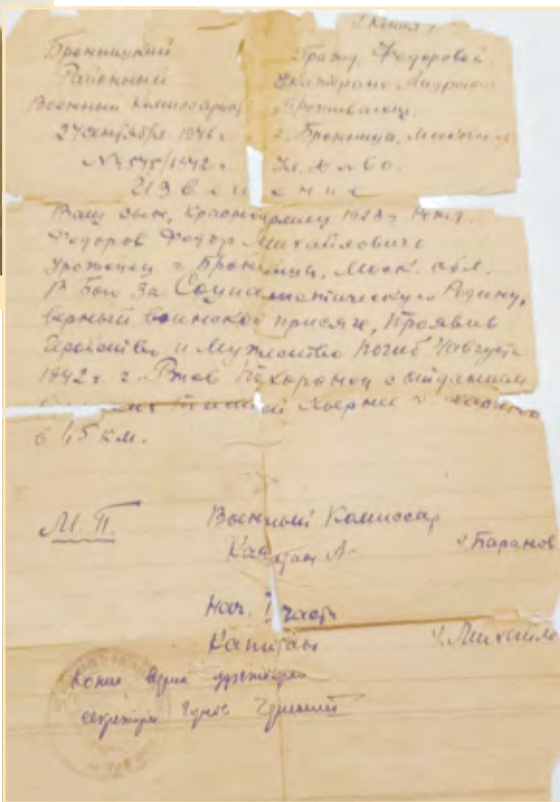 / Копия /
Бронницкий
Районный
Военный Комиссариат
27 сентября 1946 г.
№ 4545/1942 г.
Гражд. Федоровой
Проживающ.
г. Бронницы, Московск
Ул. № 60.
Извещение
Ваш сын, Красноармеец 1923 г. рожд.
Федоров Федор Михайлович
уроженец г. Бронницы, Моск. обл.
В бою за Социалистическую Родину,
верный воинской присяге, проявив
геройство и мужество погиб 4 августа
1942 г. г. Ржов Похоронен с отданием
севернее г.
в 1,5 км.
М. П.
Военный Комиссар
Капитан А. /Баранов
Нач. 1 части
Капитан /Михайло
Копия верна
секретарь